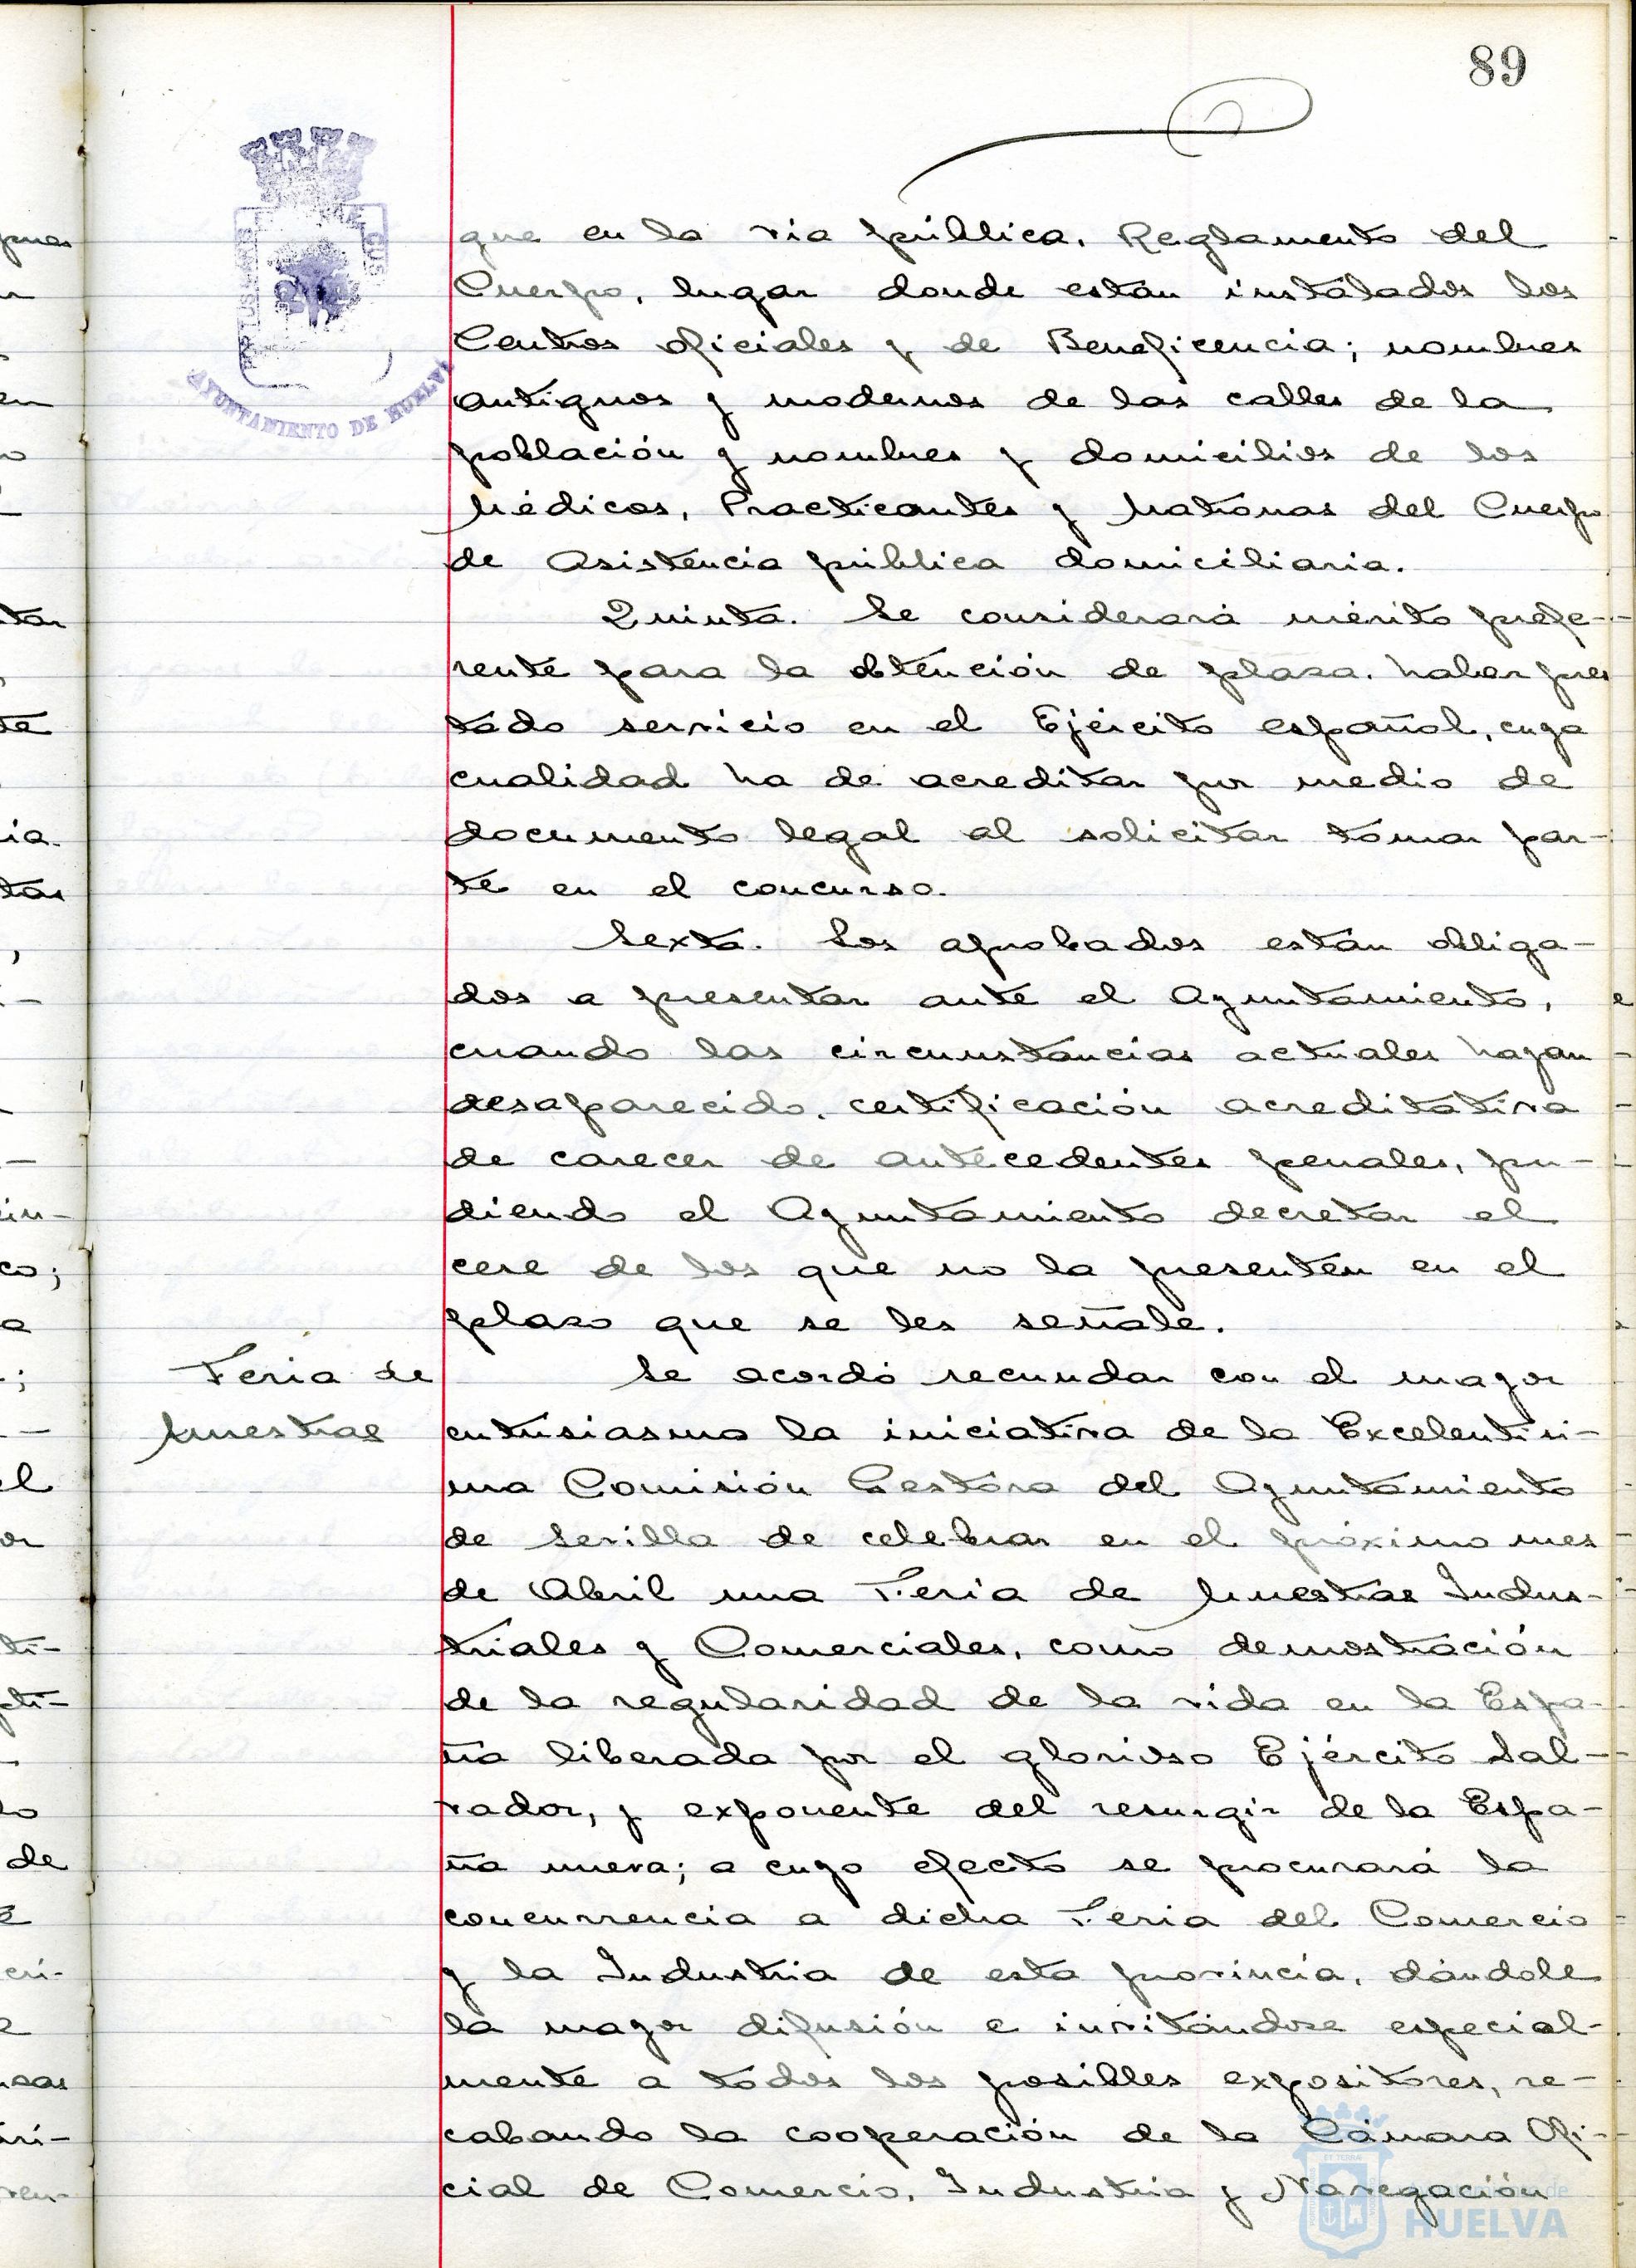 89
que en la via pública, Reglamento del
Cuerpo, lugar donde están instalados los
Centros oficiales y de Beneficencia; nombres
antiguos y modernos de las calles de la
población y nombres y domicilios de los
Médicos, Practicantes y Matronas del Cuerpo
de Asistencia pública domiciliaria.
Quinta. Se considerará mérito prefe-
rente para la obtención de plaza, haber pres
tado servicio en el Ejército español, cuya
cualidad ha de acreditar por medio de
documento legal al solicitar tomar par-
te en el concurso.
Sexta. Los aprobados están obliga-
dos a presentar ante el Ayuntamiento,
cuando las circunstancias actuales hayan
desaparecido, certificación acreditativa
de carecer de antecedentes penales, pu-
diendo el Ayuntamiento decretar el
cese de los que no la presenten en el
plazo que se les señale.
Feria de
Muestras
Se acordó secundar con el mayor
entusiasmo la iniciativa de la Excelentísi-
ma Comisión Gestora del Ayuntamiento
de Sevilla de celebrar en el próximo mes
de Abril una Feria de Muestras Indus-
triales y Comerciales, como demostración
de la regularidad de la vida en la Espa-
ña liberada por el glorioso Ejército Sal-
vador, y exponente del resurgir de la Espa-
ña nueva; a cuyo efecto se procurará la
concurrencia a dicha Feria del Comercio
y la Industria de esta provincia, dándole
la mayor difusión e invitándose especial-
mente a todos los posibles expositores, re-
cabando la cooperación de la Cámara Ofi-
cial de Comercio, Industria y Navegación
AYUNTAMIENTO DE HUELVA
HUELVA